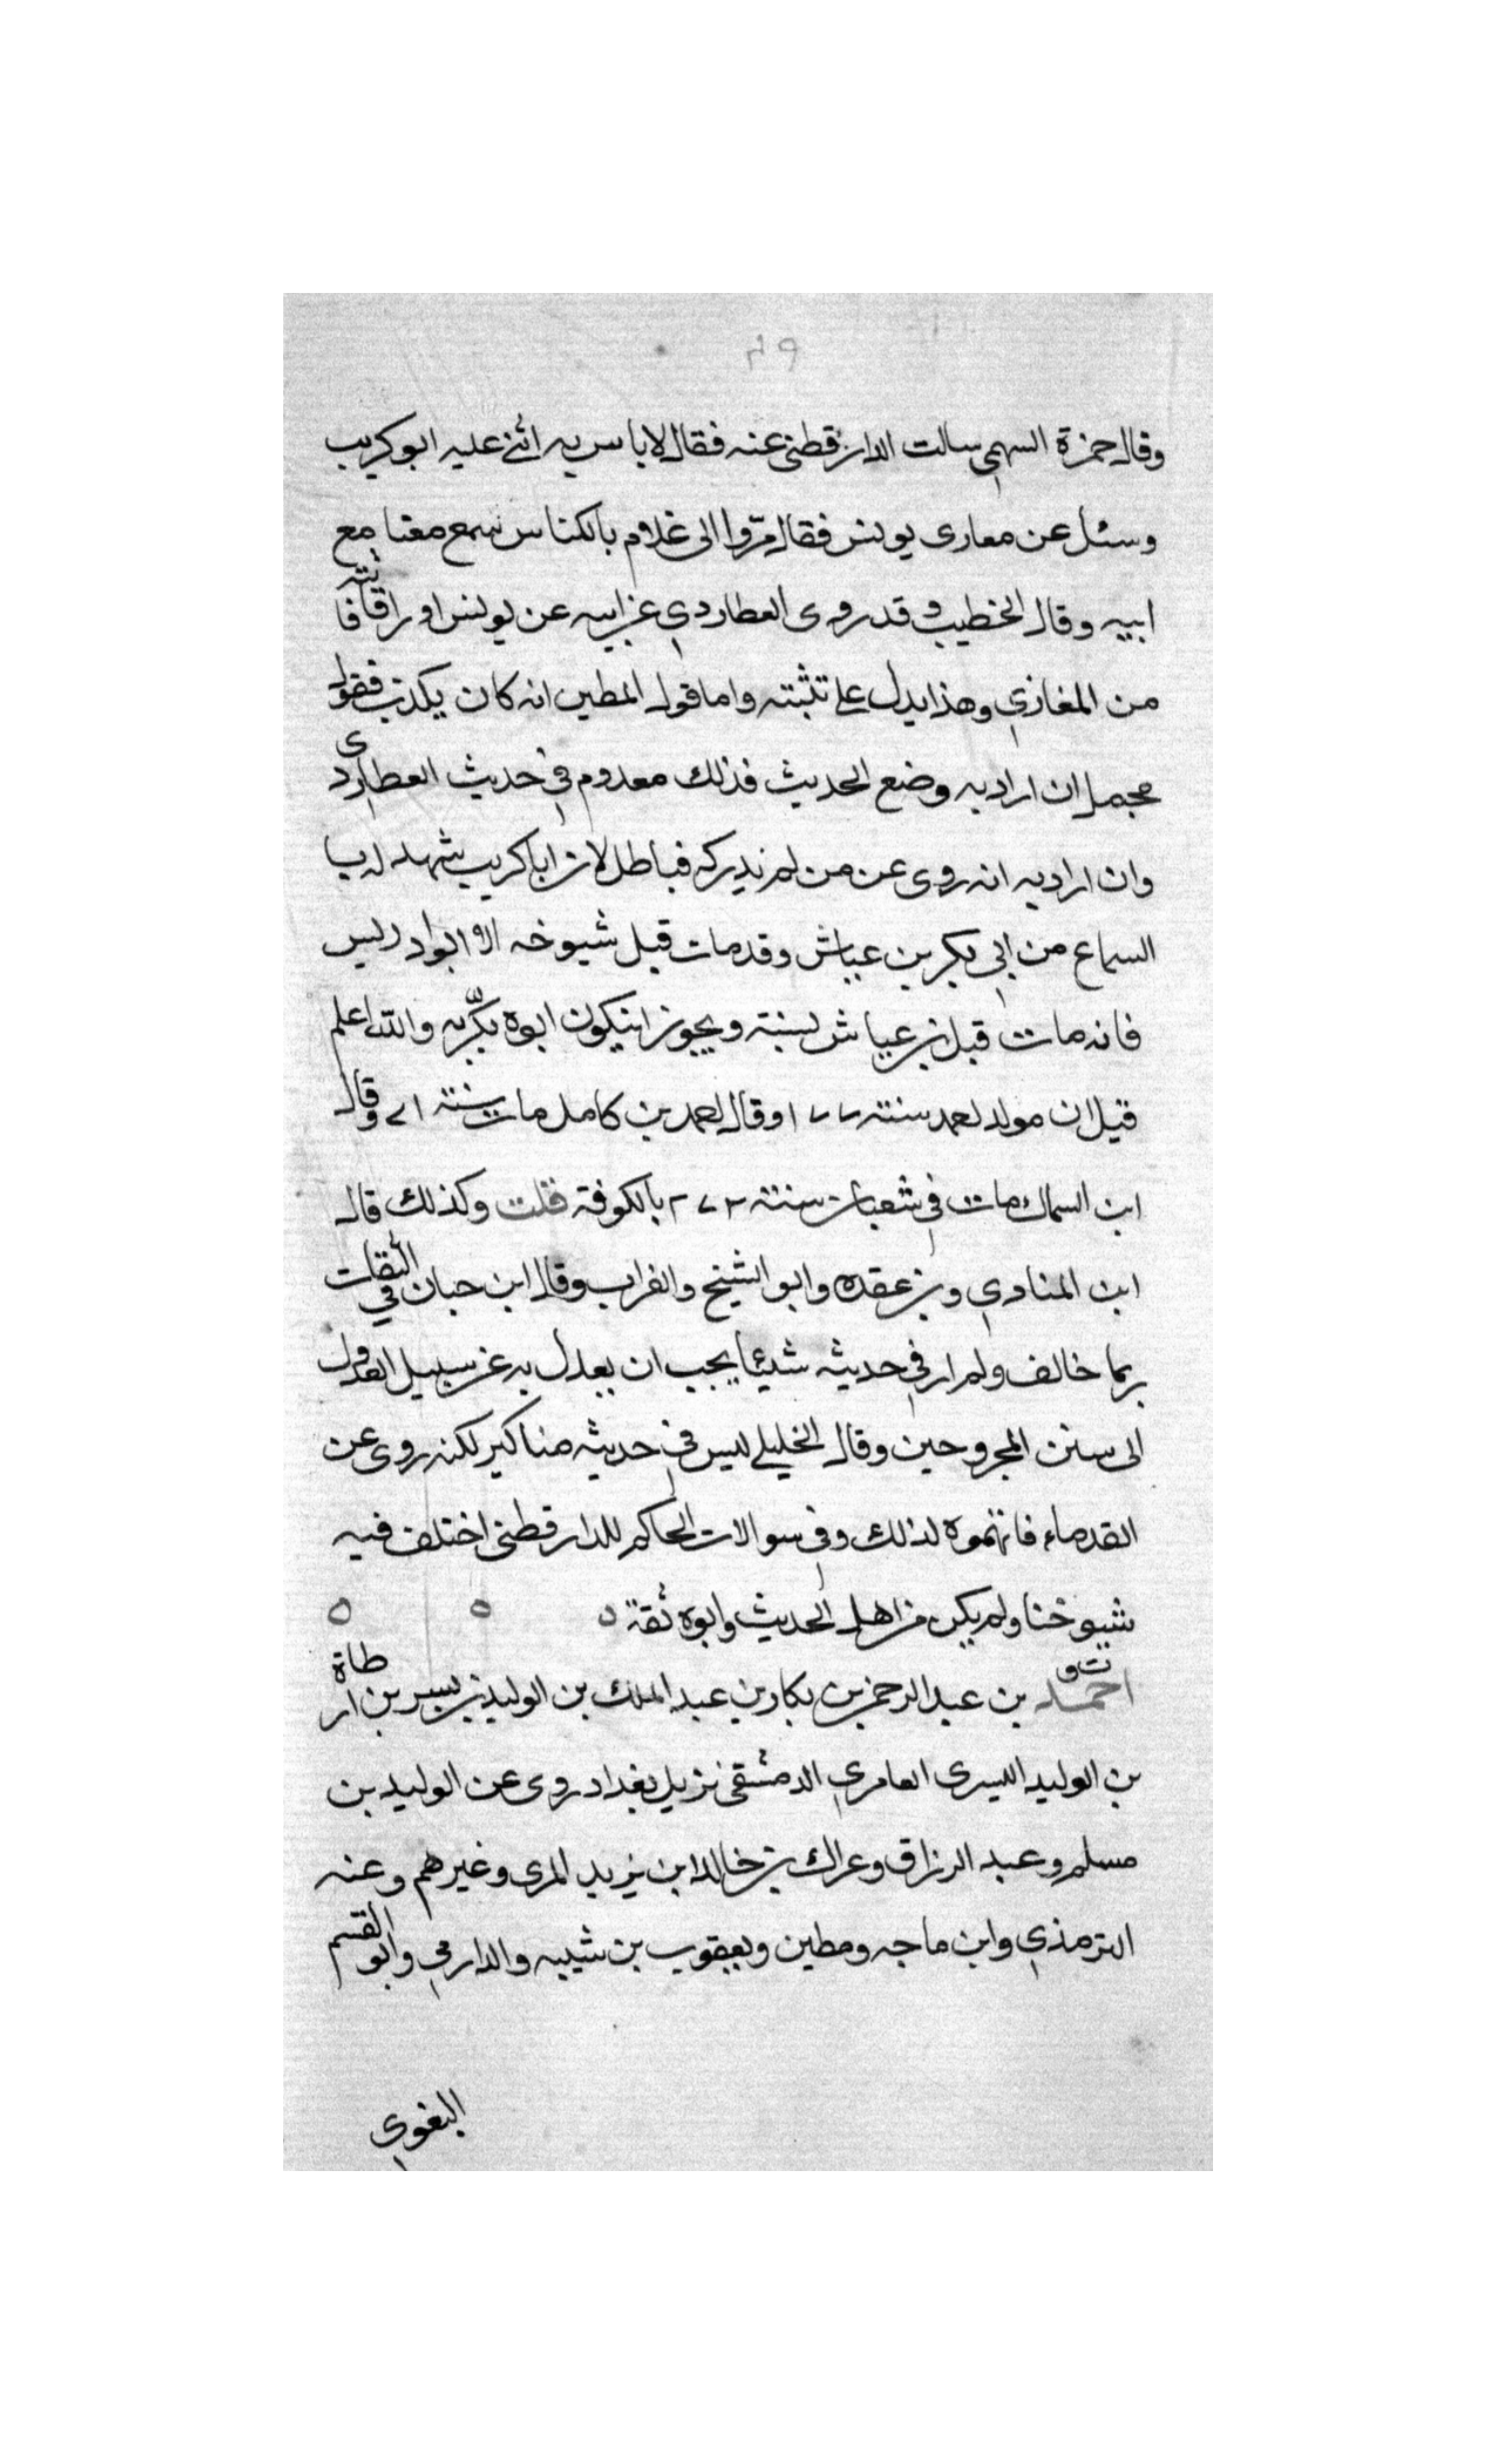 ٤٩
وقال حمزة السهمي سالت الدارقطني عنه فقال لا باس به اثنى عليه ابو كريب
وسئل عن مغازى يونس فقال مرّوا الى غلام بالكناس سمع معنا مع
ابيه وقال الخطيب وقد روى العطاردي عن ابيه عن يونس اوراقا فاتته
من المغازي وهذا يدل على تثبته واما قول المطين انه كان يكذب فقول
مجمل ان اراد به وضع الحديث فذلك معدوم في حديث العطاردى
وان اراد به انه روى عن من لم يدركه فباطل لان ابا كريب شهد له بـ
السماع من ابي بكر بن عياش وقد مات قبل شيوخه الا ابو ادريس
فانه مات قبل بن عياش بسنة ويجوز ان يكون ابوه بكّر به والله اعلم
قيل ان مولد احمد سنة ١٧٧ وقال احمد بن كامل مات سنة ٧١ وقال
ابن السماك مات في شعبان سنة ٢٧٢ بالكوفة قلت وكذلك قال
ابن المنادي وبن عقده وابو الشيخ والقراب وقال ابن حبان في الثقات
ربما خالف ولم ار في حديثه شيئا يجب ان يعدل به عن سبيل العدول
الى سنن المجروحين وقال الخليلي ليس في حديثه مناكير لكنه روى عن
القدماء فاتهموه لذلك وفي سوالات الحاكم للدارقطني اختلف فيه
شيوخنا ولم يكن من اهل الحديث وابوه ثقة ٥ ٥ ٥
ت و احمد بن عبد الرحمن بن بكار بن عبد الملك بن الوليد بن بسر بن ارطاة
بن الوليد البسرى العامري الدمشقي نزيل بغداد روى عن الوليد بن
مسلم وعبد الرزاق وعراك بن خالد ابن يزيد المرى وغيرهم وعنه
الترمذي وابن ماجه ومطين ويعقوب بن شيبه والدارمي وابو القسم
البغوي